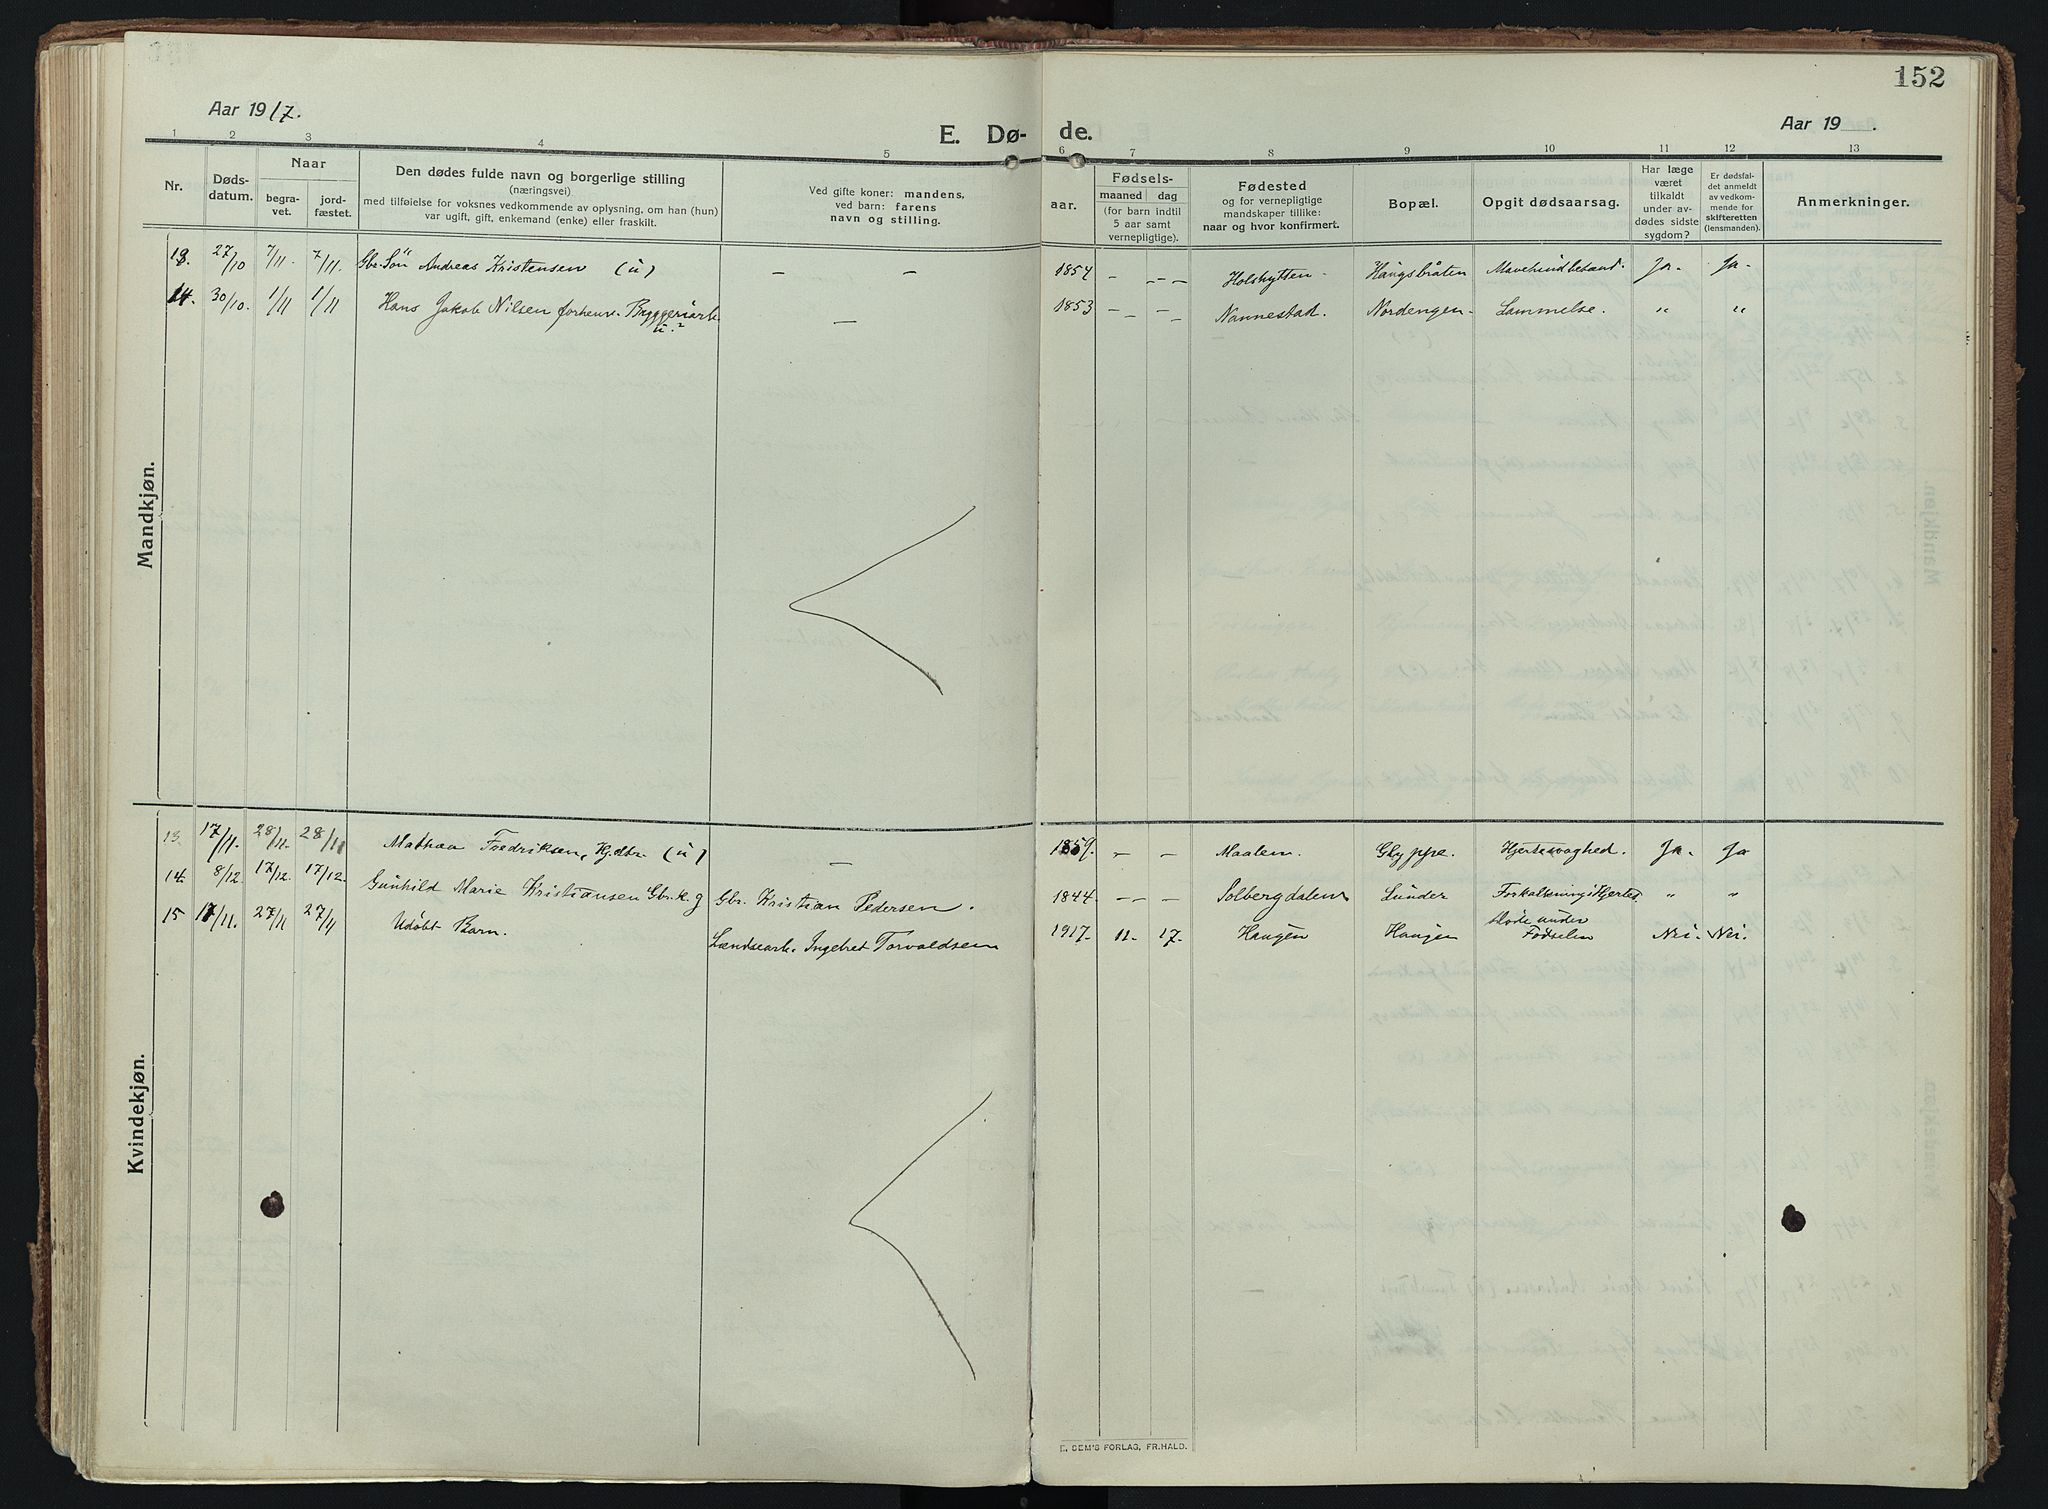 152
Aar 1917.
E. Dø- de.
Aar 19 .
1 2 3 4 5 6 7 8 9 10 11 12 13
Nr.
Døds-
datum.
Naar
begra-
vet.
jord-
fæstet.
Den dødes fulde navn og borgerlige stilling
(næringsvei)
med tilføielse for voksnes vedkommende av oplysning, om han (hun)
var ugift, gift, enkemand (enke) eller fraskilt.
Ved gifte koner: mandens,
ved barn: farens
navn og stilling.
Fødsels-
aar. maaned dag
(for barn indtil
5 aar samt
vernepligtige).
Fødested
og for vernepligtige
mandskaper tillike:
naar og hvor konfirmert.
Bopæl.
Opgit dødsaarsag.
Har læge
været
tilkaldt
under av-
dødes sidste
sygdom?
Er dødsfal-
det anmeldt
av vedkom-
mende for
skifteretten
(lensmanden).
Anmerkninger.
Mandkjøn.
13. 27/10 7/11. 7/11. Gbr. Søn Andreas Kristensen (u) — — 1854 - - - Holshytten - Haugsbråten Mavehindebetænd. Ja - Ja -
14. 30/10. 1/11 1/11 Hans Jakob Nilsen forhenv. Bryggeriarb. u.? — 1853 - - - Nannestad. Nordengen - Lammelse. " "
Kvindekjøn.
13 17/11. 28/11. 28/11 Mathea Fredriksen, Hjdtr. (u) — 1859. - - Maalem. Glyppe. Hjertesvaghed. Ja - Ja
14. 8/12. 17/12. 17/12. Gunhild Marie Kristiansen Gbr.k. g Gbr. Kristian Pedersen. 1844 - - - Solbergdalen Lunder Forkalkning i Hjertet " "
15 17/11. 27/11 27/11 Udøbt Barn. Landsearb. Ingebret Torvaldsen 1917. 11. 17. Haugen Haugen Døde under Fødselen Nei. Nei.
E. SEM'S FORLAG, FR.HALD.